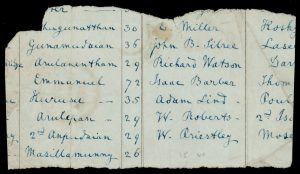 er
hugunatthan 30 L. Miller Hosk
Gunamudaian 36 John B. Sibree Lase
Arulanantham 29 Richard Watson Dar
Emmanuel 72 Isaac Barber Thom
Kuruse — 35 Adam Lind - Poul
Arulapan — 29 W. Roberts - 2d Isa
2d Anpudaian 29 W. Priestley Mose
Masillamunny 26